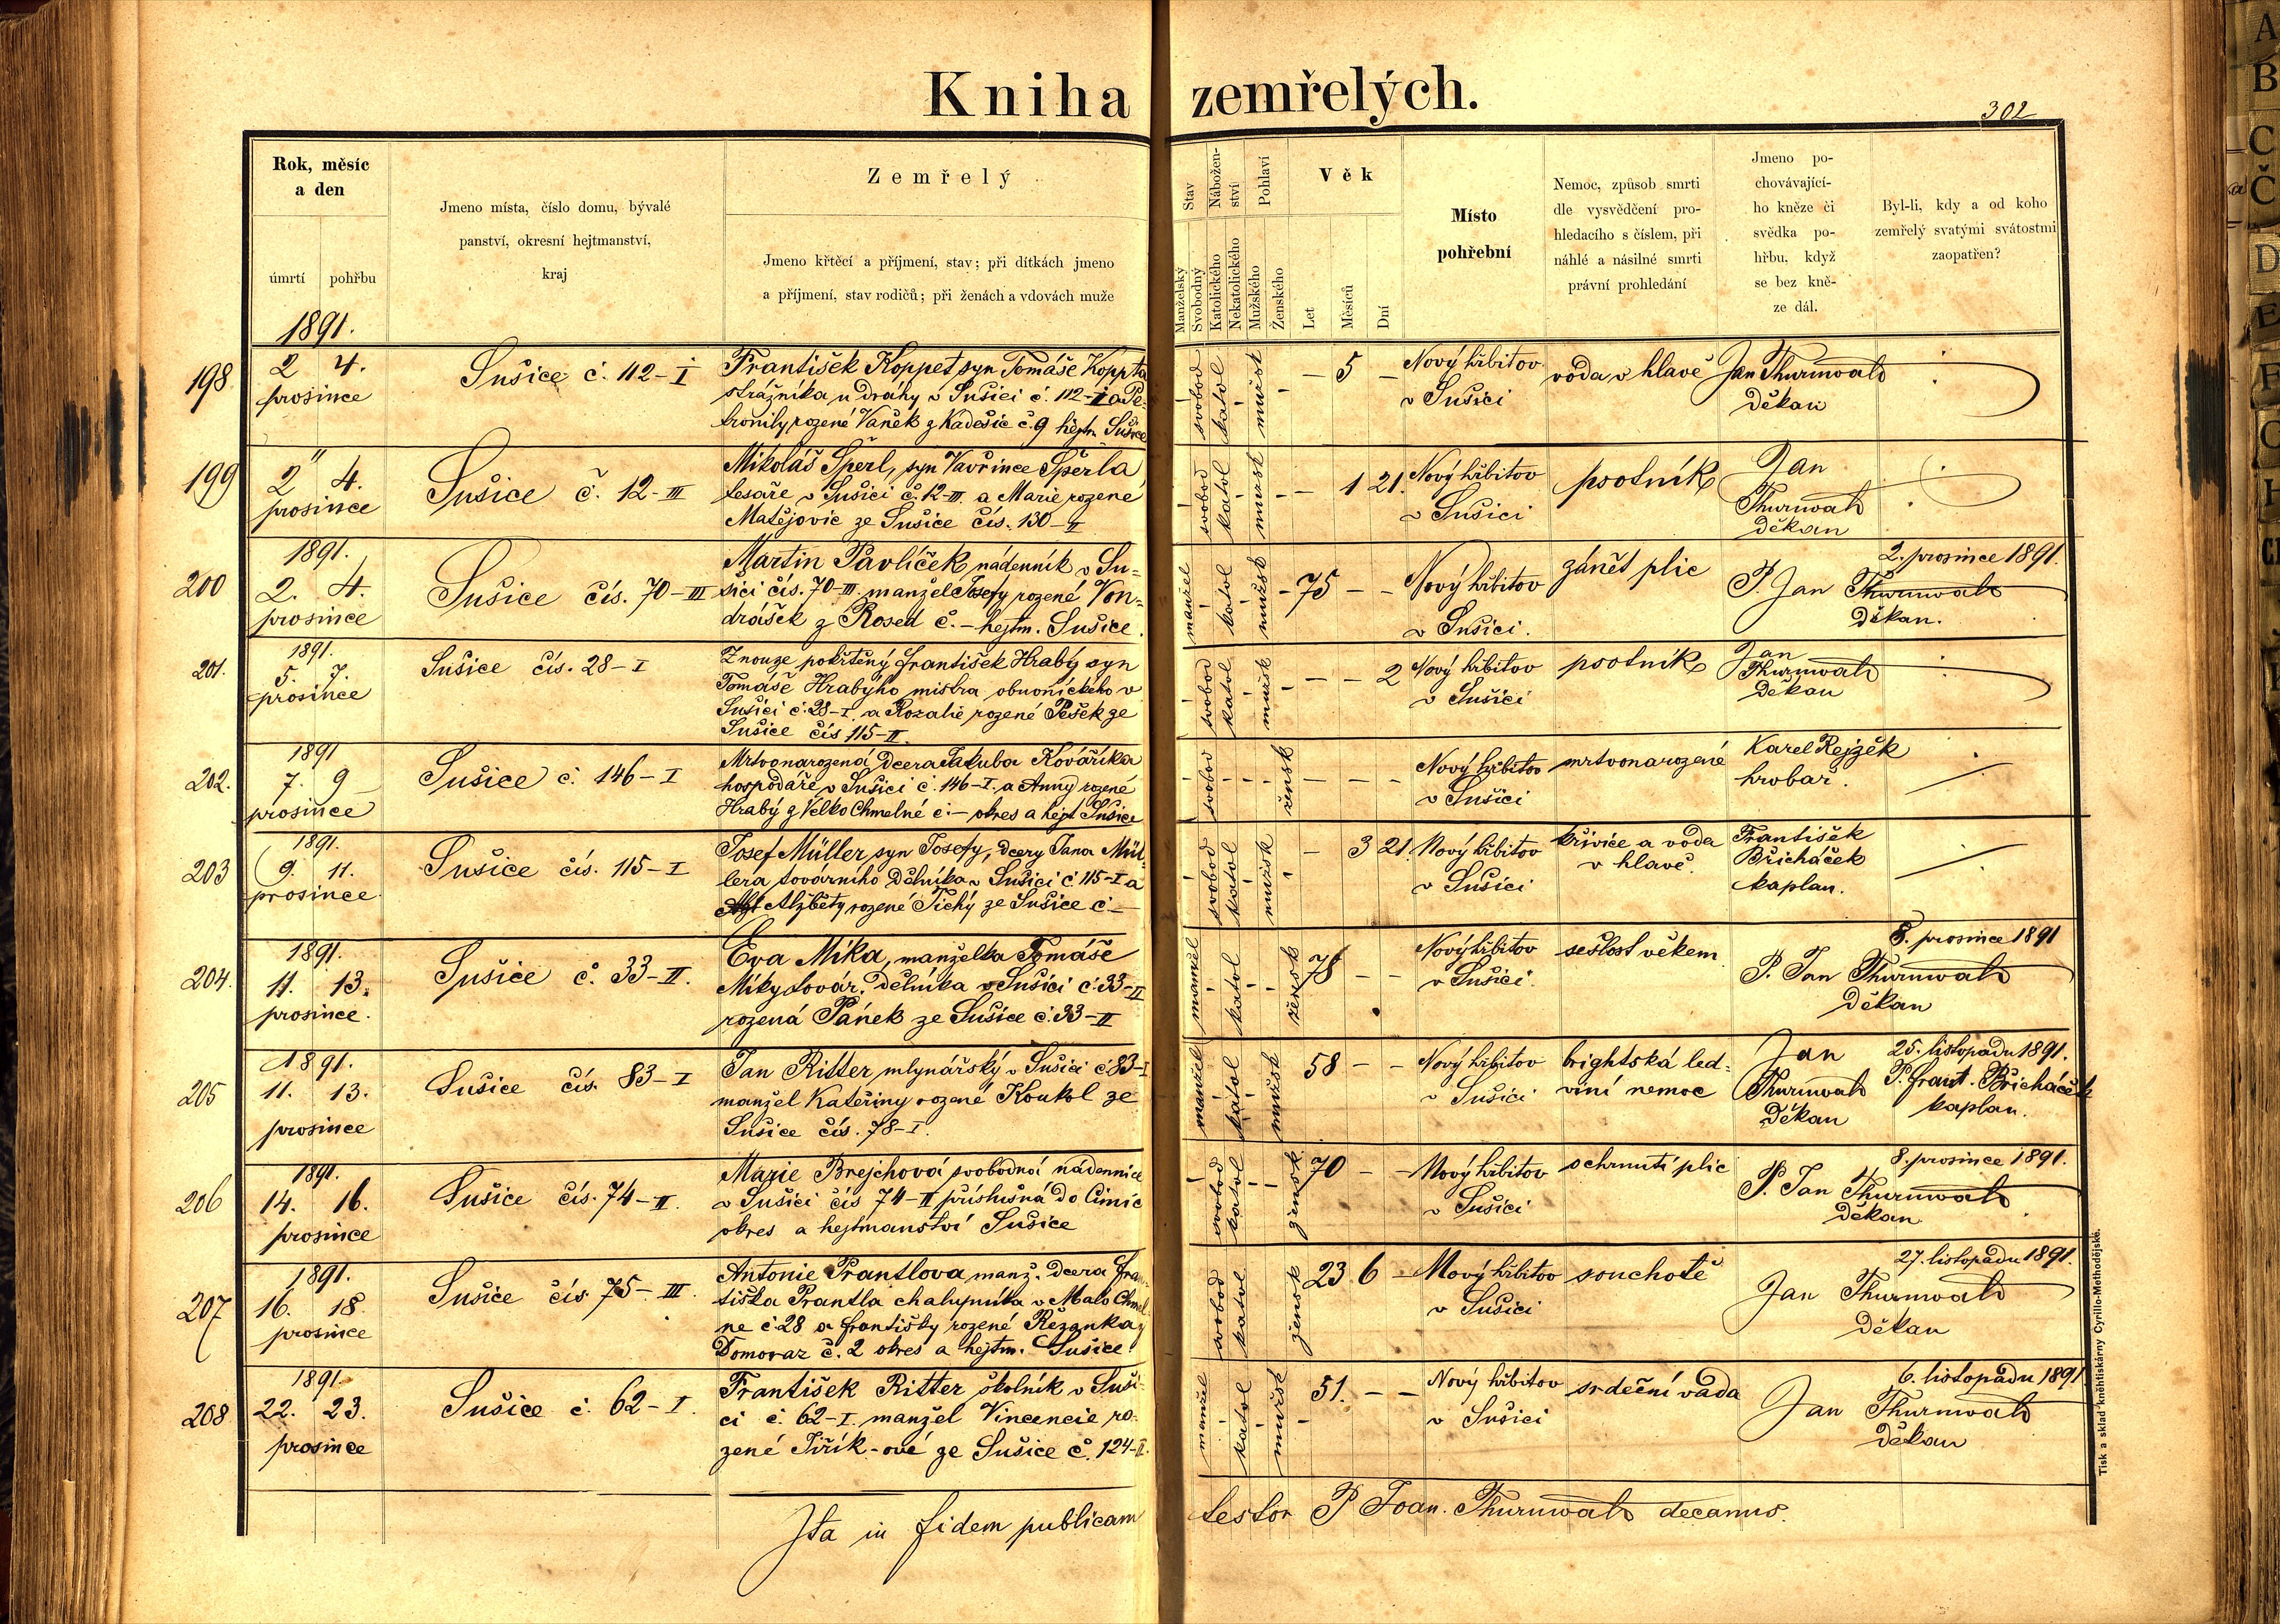 Kniha zemřelých.
302
Rok, měsíc
a den
úmrtí pohřbu
Jmeno místa, číslo domu, bývalé
panství, okresní hejtmanství,
kraj
Zemřelý
Jmeno křtěcí a příjmení, stav; při dítkách jmeno
a příjmení, stav rodičů; při ženách a vdovách muže
Stav
Manželský
Svobodný
Nábožen-
ství
Katolického
Nekatolického
Pohlaví
Mužského
Ženského
Věk
Let
Měsíců
Dní
Místo
pohřební
Nemoc, způsob smrti
dle vysvědčení pro-
hledacího s číslem, při
náhlé a násilné smrti
právní prohledání
Jmeno po-
chovávající-
ho kněze či
svědka po-
hřbu, když
se bez kně-
ze dál.
Byl-li, kdy a od koho
zemřelý svatými svátostmi
zaopatřen?
1891.
198
2 4.
prosince
Sušice č. 112-I
František Koppet syn Tomáše Koppta
strážníka u dráhy v Sušici č. 112-I a Pe-
tronily rozené Vaněk z Kadešic č. 9 hejtm Sušice
svobod katol mužsk
— 5 —
Nový hřbitov
v Sušici
voda v hlavě
Jan Thurnwald
děkan
199
2 4.
prosince
Sušice č. 12-III
Mikoláš Šperl, syn Vavřince Šperla
tesaře v Sušici č. 12-III. a Marie rozené
Matějovic ze Sušice čís. 130-II
svobod katol mužsk
— 1 21.
Nový hřbitov
v Sušici
psotník
Jan
Thurnwald
děkan
200
1891.
2. 4.
prosince
Sušice čís. 70-III
Martin Pavlíček nádenník v Su-
šici čís. 70-III. manžel Josefy rozené Von-
drášek z Rosed č. — hejtm. Sušice.
manžel katol mužsk
75 — —
Nový hřbitov
v Sušici.
zánět plic
2. prosince 1891.
P. Jan Thurnwald
děkan.
201.
1891.
5. 7.
prosince
Sušice čís. 28-I
Z nouze pokřtěný František Hrabý syn
Tomáše Hrabýho mistra obuvnického v
Sušici č. 28-I. a Rozalie rozené Pešek ze
Sušice čís 115-II.
svobod katol mužsk
— — 2
Nový hřbitov
v Sušici
psotník
Jan
Thurnwald
děkan
202.
1891
7. 9
prosince
Sušice č. 146-I
Mrtvonarozená dcera Jakuba Kováříka
hospodáře v Sušici č. 146-I. a Anny rozené
Hrabý z Velko Chmelné č. — okres a hejt Sušice
svobod žensk
— — —
Nový hřbitov
v Sušici
mrtvonarozené
Karel Rejzěk
hrobař.
203
1891.
9. 11.
prosince
Sušice čís. 115-I
Josef Müller syn Josefy, dcery Jana Mül-
lera továrního dělníka v Sušici č 115-I a
Alžběty rozené Tichý ze Sušice č —
svobod katol mužsk
— 3 21.
Nový hřbitov
v Sušici
křivice a voda
v hlavě.
František
Břicháček
kaplan.
204.
1891.
11. 13.
prosince.
Sušice č. 33-II.
Eva Míka, manželka Tomáše
Míky továr. dělníka v Sušici č. 33-II
rozená Pánek ze Sušice č. 33-II
manžel katol žensk
78 — —
Nový hřbitov
v Sušici.
sešlost věkem
8. prosince 1891
P. Jan Thurnwald
děkan
205
1891.
11. 13.
prosince
Sušice čís. 83-I
Jan Ritter mlynářský v Sušici č 83-I
manžel Kateřiny rozené Koukol ze
Sušice čís. 78-I.
manžel katol mužsk
58 — —
Nový hřbitov
v Sušici
brightská led-
viní nemoc
Jan
Thurnwald
děkan
25. listopadu 1891.
P. Frant. Břicháček
kaplan.
206
1891.
14. 16.
prosince
Sušice čís. 74-II.
Marie Brejchová svobodná nádennice
v Sušici čís 74-II příslušná do Čimic
okres a hejtmanství Sušice
svobod katol žensk
70 — —
Nový hřbitov
v Sušici
ochrnutí plic
8. prosince 1891.
P. Jan Thurnwald
děkan
207
1891.
16. 18.
prosince
Sušice čís. 75-III.
Antonie Prantlova manž. dcera Fran-
tiška Prantla chalupníka v Malo Chmel-
ne č 28 a Františky rozené Řezanka z
Domoraz č. 2 okres a hejtm. Sušice
svobod katol žensk
23 6 —
Nový hřbitov
v Sušici
souchotě
27. listopadu 1891.
Jan Thurnwald
děkan
208
1891.
22. 23.
prosince
Sušice č. 62-I.
František Ritter školník v Suši-
ci č. 62-I. manžel Vincencie ro-
zené Jiřík-ové ze Sušice č. 124-II.
manžel katol mužsk
51. — —
Nový hřbitov
v Sušici
srdeční vada
6. listopadu 1891
Jan Thurnwald
děkan
Ita in fidem publicam testor P Joan. Thurnwald decanus.
Tisk a sklad kněhtiskárny Cyrillo-Methodějské.
A
B
C
Č
D
E
F